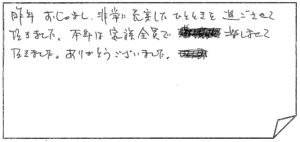 昨年 おじゃまし、非常に充実したひとときを過ごさせて
頂きました。本年は家族全員で お邪しませて
頂きました。ありがとうございました。